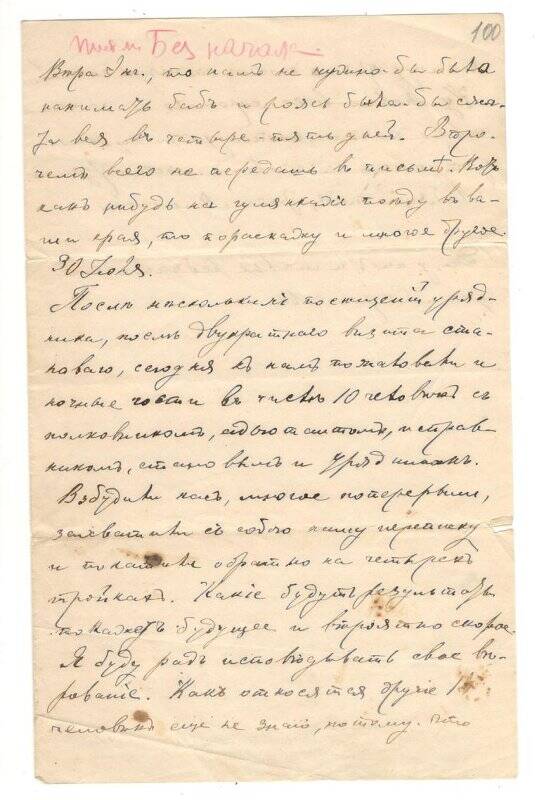 100
Без начала.
то намъ не нужно бы было
нанимать бабъ и рожь была бы снята
вся въ четыре-пять дней. Впро-
чемъ всего не передашь въ письмѣ. Коль
какъ нибудь на гулянкахъ поѣду въ ва-
ши края, то пораскажу и многое другое.
30 Іюля.
Послѣ нѣсколькихъ посѣщеній уряд-
ника, послѣ двукратнаго визита ста-
новаго, сегодня къ намъ пожаловали и
ночные гости въ числѣ 10 человѣкъ съ
полковникомъ, адъютантомъ, исправ-
никомъ, становымъ и урядникомъ.
Взбудили насъ, многое поперерыли,
захватили съ собою нашу переписку
и покатили обратно на четырехъ
тройкахъ. Какіе будутъ результаты
покажетъ будущее и вѣроятно скорое.
Я буду радъ исповѣдывать свое вѣ-
рованіе. Какъ относятся другіе
человѣкъ еще не знаю, потому что